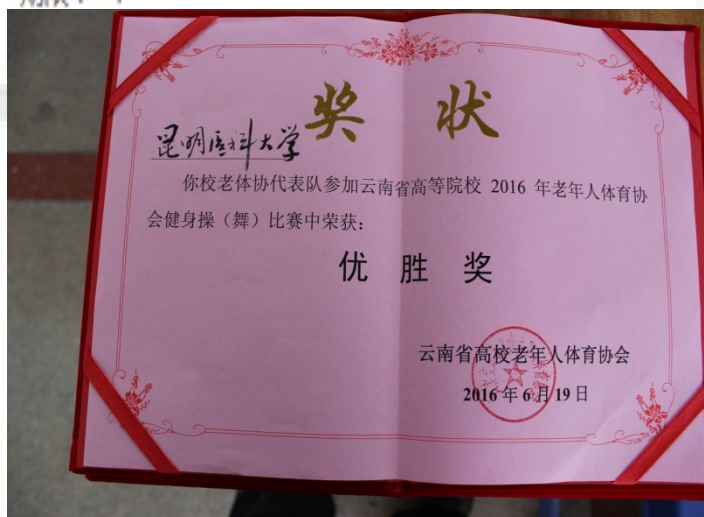 奖 状
昆明医科大学
你校老体协代表队参加云南省高等院校 2016 年老年人体育协
会健身操（舞）比赛中荣获：
优 胜 奖
云南省高校老年人体育协会
2016 年 6 月 19 日